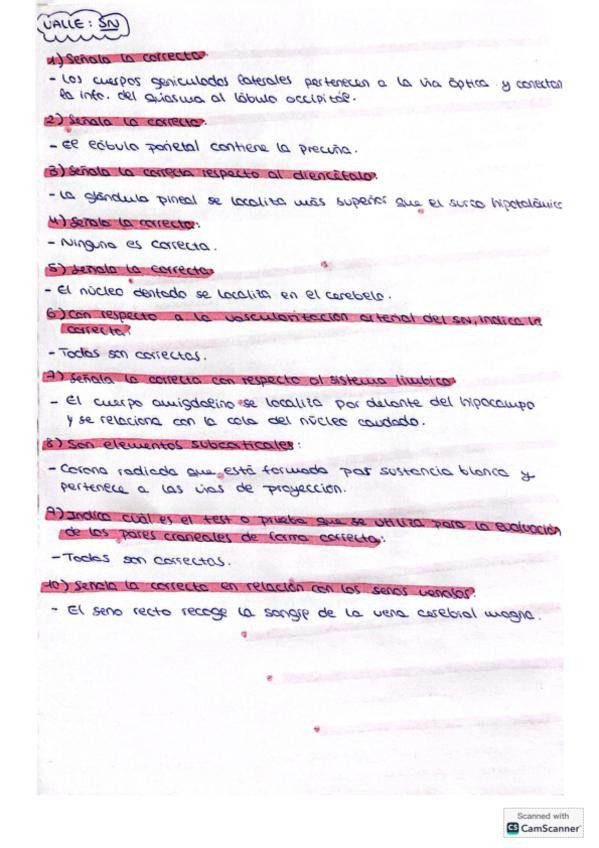 VALLE: SN
1) Señala la correcta.
- Los cuerpos geniculados laterales pertenecen a la vía óptica y conectan
la info. del quiasma al lóbulo occipital.
2) Señala la correcta.
- El lóbulo parietal contiene la precuña.
3) Señala la correcta respecto al diencéfalo.
- La glándula pineal se localiza más superior que el surco hipotalámico
4) Señala la correcta:
- Ninguna es correcta.
5) Señala la correcta
- El núcleo dentado se localiza en el cerebelo.
6) Con respecto a la vascularización arterial del SN, indica la
correcta:
- Todas son correctas.
7) Señala la correcta con respecto al sistema límbico
- El cuerpo amigdalino se localiza por delante del hipocampo
y se relaciona con la cola del núcleo caudado.
8) Son elementos subcorticales:
- Corona radiada que está formada por sustancia blanca y
pertenece a las vias de proyección.
9) Indica cuál es el test o prueba que se utiliza para la evaluación
de los pares craneales de forma correcta:
- Todas son correctas.
10) Señala la correcta en relación con los senos venosos:
- El seno recto recoge la sangre de la vena cerebral magna.
Scanned with
CS CamScanner